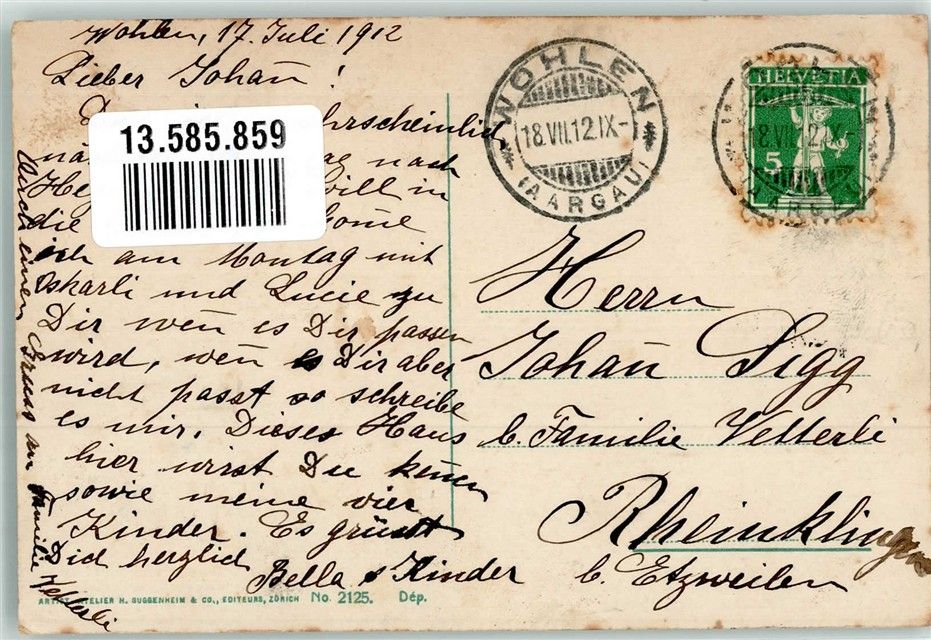 Wohlen, 17. Juli 1912
Lieber Johañ!
13.585.859
nach
will in
die
ich am Montag mit
und Lucie zu
Dir weñ es Dir passen
wird, weñ es Dir aber
nicht passt so schreibe
es mir. Dieses Haus
hier wirst Du keñen
sowie meine vier
Kinder. Es grüsst
Dich herzlich
Bella & Kinder
Auch einen Gruss an Familie Vetterli
WOHLEN
18.VII.12.IX-
(AARGAU)
HELVETIA
5
Herrn
Johañ Sigg
b. Familie Vetterli
Rheinklingen
b. Etzweilen
ATELIER H. GUGGENHEIM & CO., EDITEURS, ZÜRICH No. 2125. Dép.